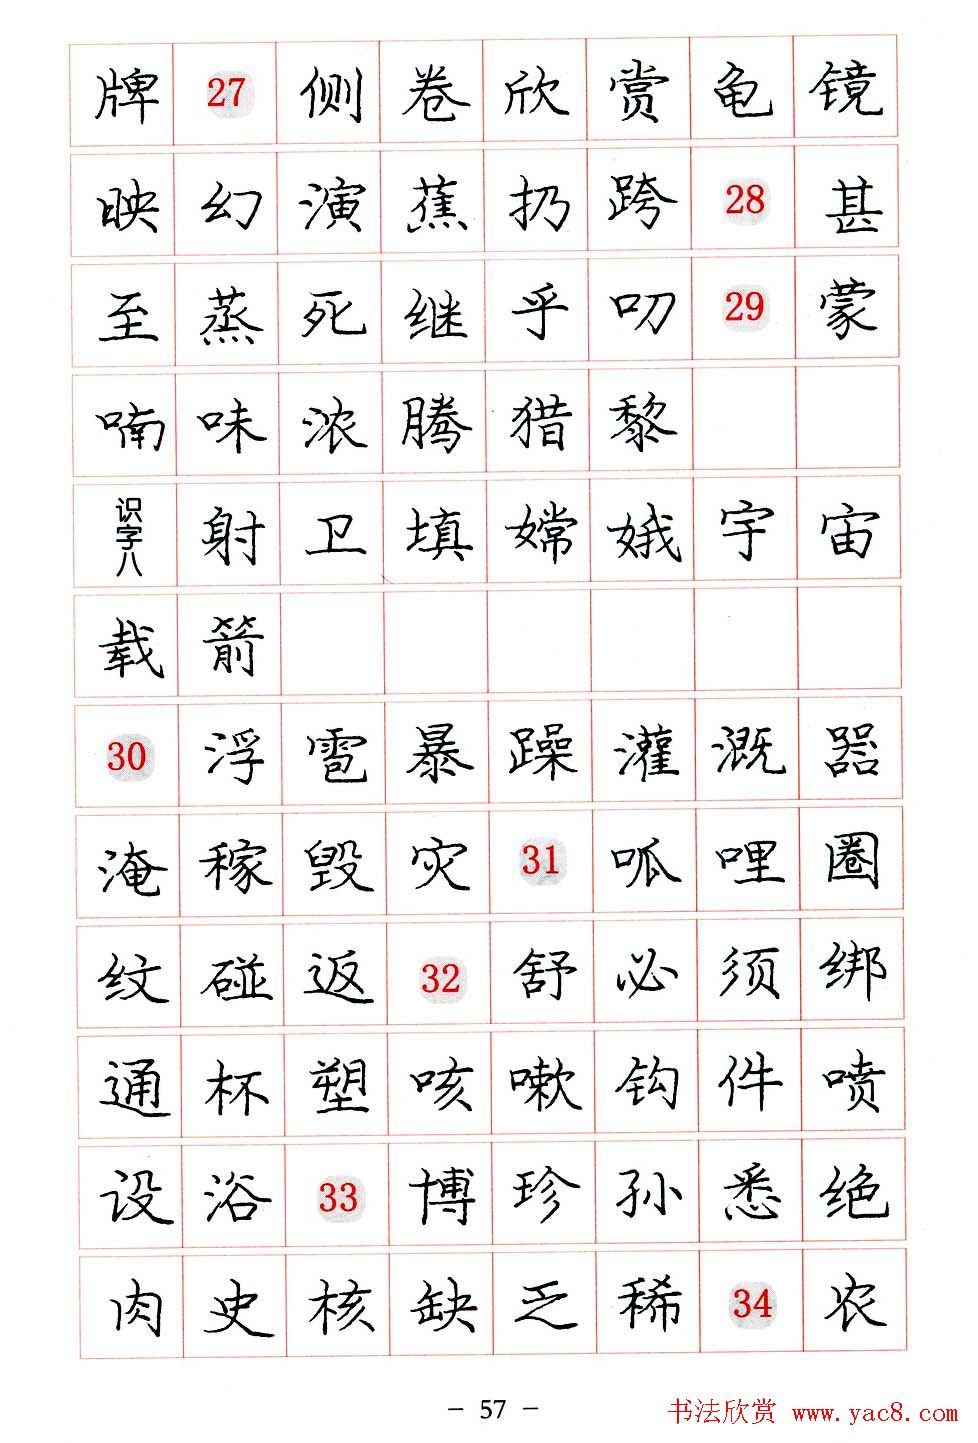 牌 27 侧 卷 欣 赏 龟 镜
映 幻 演 蕉 扔 跨 28 甚
至 蒸 死 继 乎 叨 29 蒙
喃 味 浓 腾 猎 黎
识字八 射 卫 填 嫦 娥 宇 宙
载 箭
30 浮 雹 暴 躁 灌 溉 器
淹 稼 毁 灾 31 呱 哩 圈
纹 碰 返 32 舒 必 须 绑
通 杯 塑 咳 嗽 钩 件 喷
设 浴 33 博 珍 孙 悉 绝
肉 史 核 缺 乏 稀 34 农
- 57 -
书法欣赏 www.yac8.com